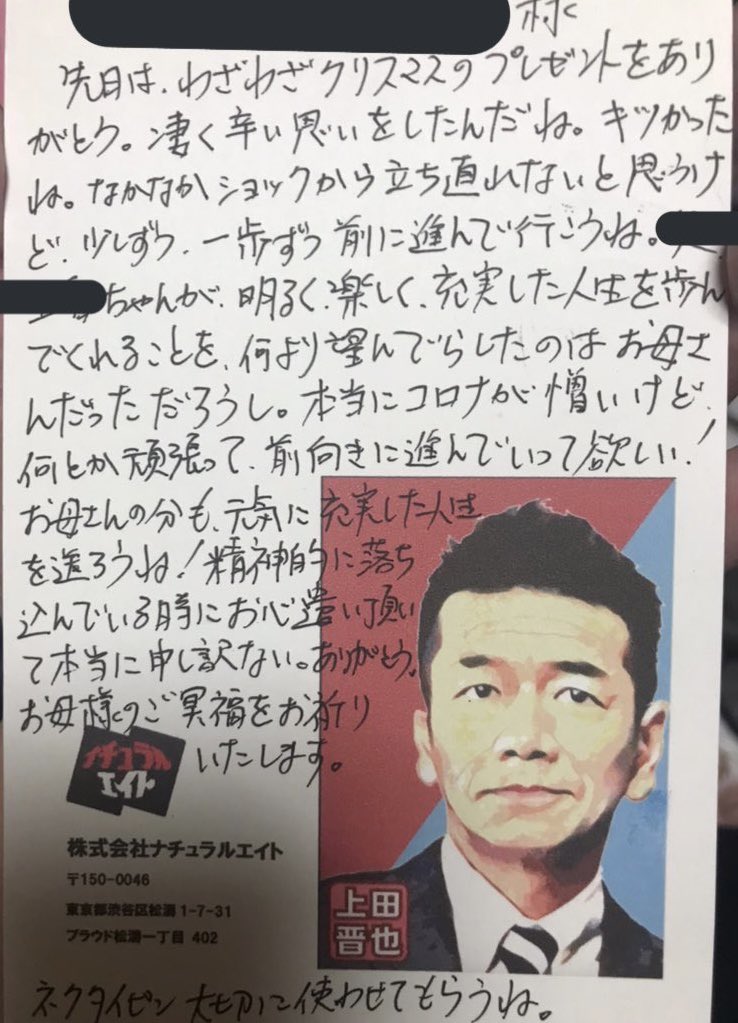 様
先日は、わざわざクリスマスのプレゼントをあり
がとう。凄く辛い思いをしたんだね。キツかった
ね。なかなかショックから立ち直れないと思うけ
ど、少しずつ、一歩ずつ前に進んで行こうね。
ちゃんが、明るく、楽しく、充実した人生を歩ん
でくれることを、何より望んでらしたのはお母さ
んだっただろうし。本当にコロナが憎いけど、
何とか頑張って、前向きに進んでいって欲しい!
お母さんの分も、元気に充実した人生
を送ろうね!精神的に落ち
込んでいる時にお心遣い頂い
て本当に申し訳ない。ありがとう。
お母様のご冥福をお祈り
いたします。
ナチュラル
エイト
株式会社ナチュラルエイト
〒150-0046
東京都渋谷区松濤1-7-31
プラウド松濤一丁目 402
上田
晋也
ネクタイピン大切に使わせてもらうね。